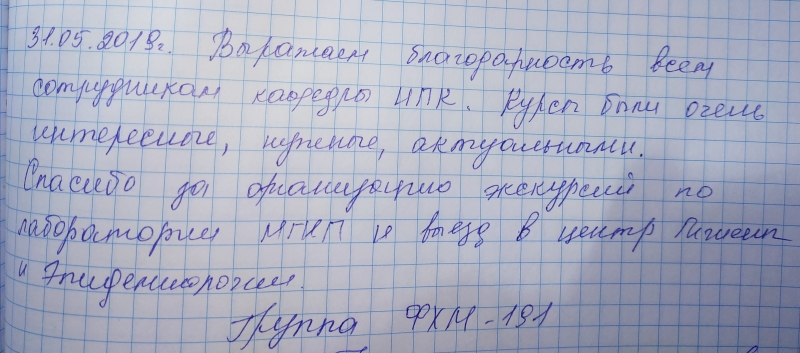 31.05.2019г. Выражаем благодарность всем
сотрудникам кафедры ИПК. Курсы были очень
интересные, нужные, актуальными.
Спасибо за организацию экскурсий по
лаборатории МГНП и выезд в центр Гигиены
и Эпидемиологии.
Группа ФХМ-191